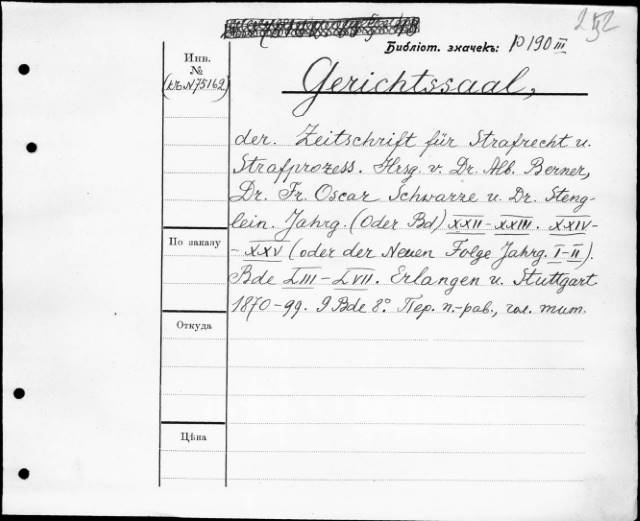 252
Библіот. значекъ: p 190 III
Инв.
№
(къ N 75162)
Gerichtssaal,
der. Zeitschrift für Strafrecht u.
Strafprozess. Hrsg. v. Dr. Alb. Berner,
Dr. Fr. Oscar Schwarze u. Dr. Steng-
lein. Jahrg. (Oder Bd) XXII-XXIII. XXIV-
-XXV (oder der Neuen Folge Jahrg. I-II).
Bde LIII-LVII. Erlangen u. Stuttgart
1870-99. 9 Bde 8°. Пер. п.-рав., гол. тит.
По заказу
Откуда
Цѣна